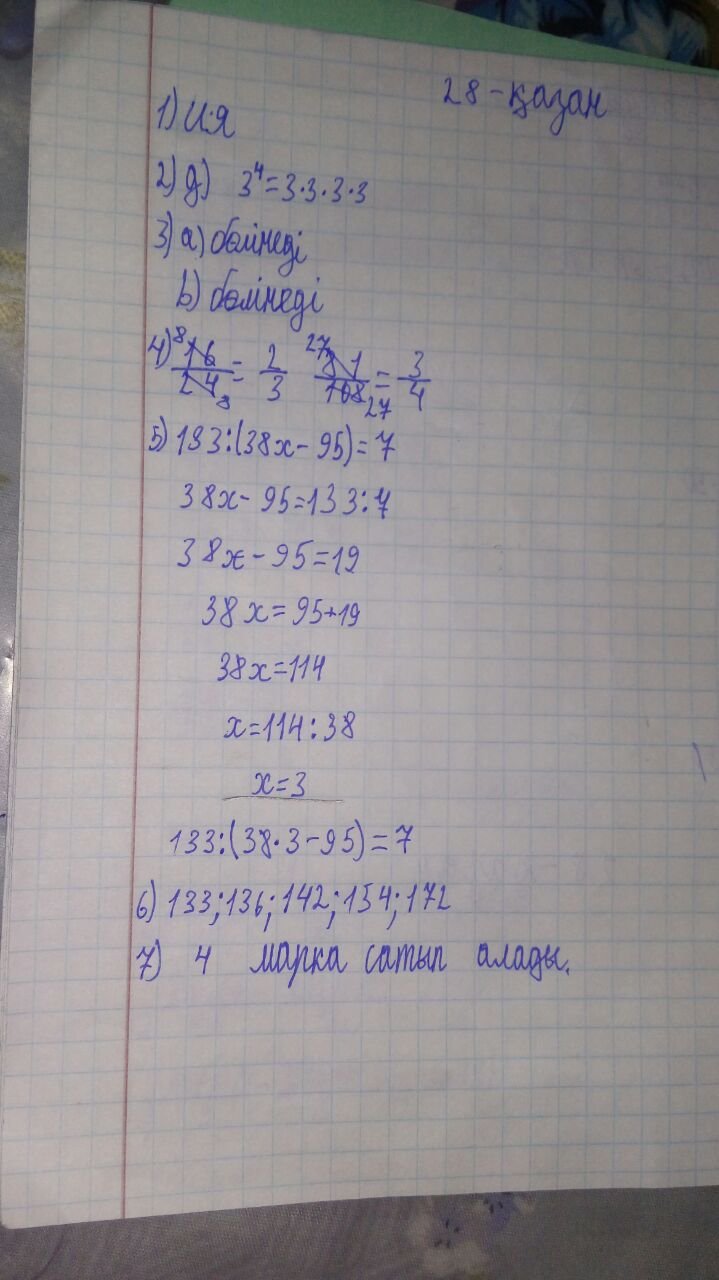 28-қазан
1) Ия
2) д) 3⁴=3·3·3·3
3) a) бөлінеді
b) бөлінеді
4) 8 16/24 8 = 2/3 27 81/108 27 = 3/4
5) 133:(38x-95)=7
38x-95=133:7
38x-95=19
38x=95+19
38x=114
x=114:38
x=3
133:(38·3-95)=7
6) 133;136;142;154;172
7) 4 марка сатып алады.